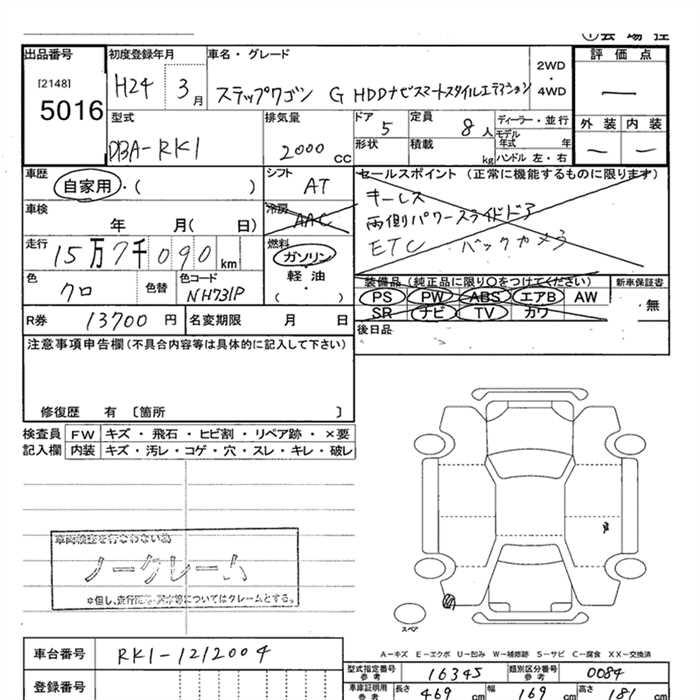 出品番号
[2148]
5016
初度登録年月
H24 3月
車名・グレード
ステップワゴン G HDDナビスマートスタイルエディション
2WD
・
4WD
評価点
—
外装 内装
— —
型式
DBA-RK1
排気量
2000cc
ドア 5
形状
定員 8人
積載 kg
ディーラー・並行
モデル
年式 年
ハンドル 左・右
車歴
自家用・( )
シフト
AT
セールスポイント (正常に機能するものに限ります)
キーレス
両側パワースライドドア
ETC バックカメラ
車検
年 月( 日)
冷房
AAC
走行
15万7千090km
燃料
ガソリン
軽油
・
( )
色
クロ
色替
色コード
NH731P
装備品 (純正品に限り〇をつけてください)
PS PW ABS エアB AW
SR ナビ TV カワ
新車保証書
無
R券 13700円
名変期限 月 日
後日品
注意事項申告欄(不具合内容等は具体的に記入して下さい)
修復歴 有〔箇所 〕
検査員
記入欄
FW キズ・飛石・ヒビ割・リペア跡・×要
内装 キズ・汚レ・コゲ・穴・スレ・キレ・破レ
車両検査を行なわない為
ノークレーム
スペア
A−キズ E−エクボ U−凹み W−補修跡 S−サビ C−腐食 XX−交換済
車台番号 RK1-1212004
登録番号
型式指定番号
参考
16345
類別区分番号
参考
0084
車庫証明用
参考
長さ 469cm
幅 169cm
高さ 181cm